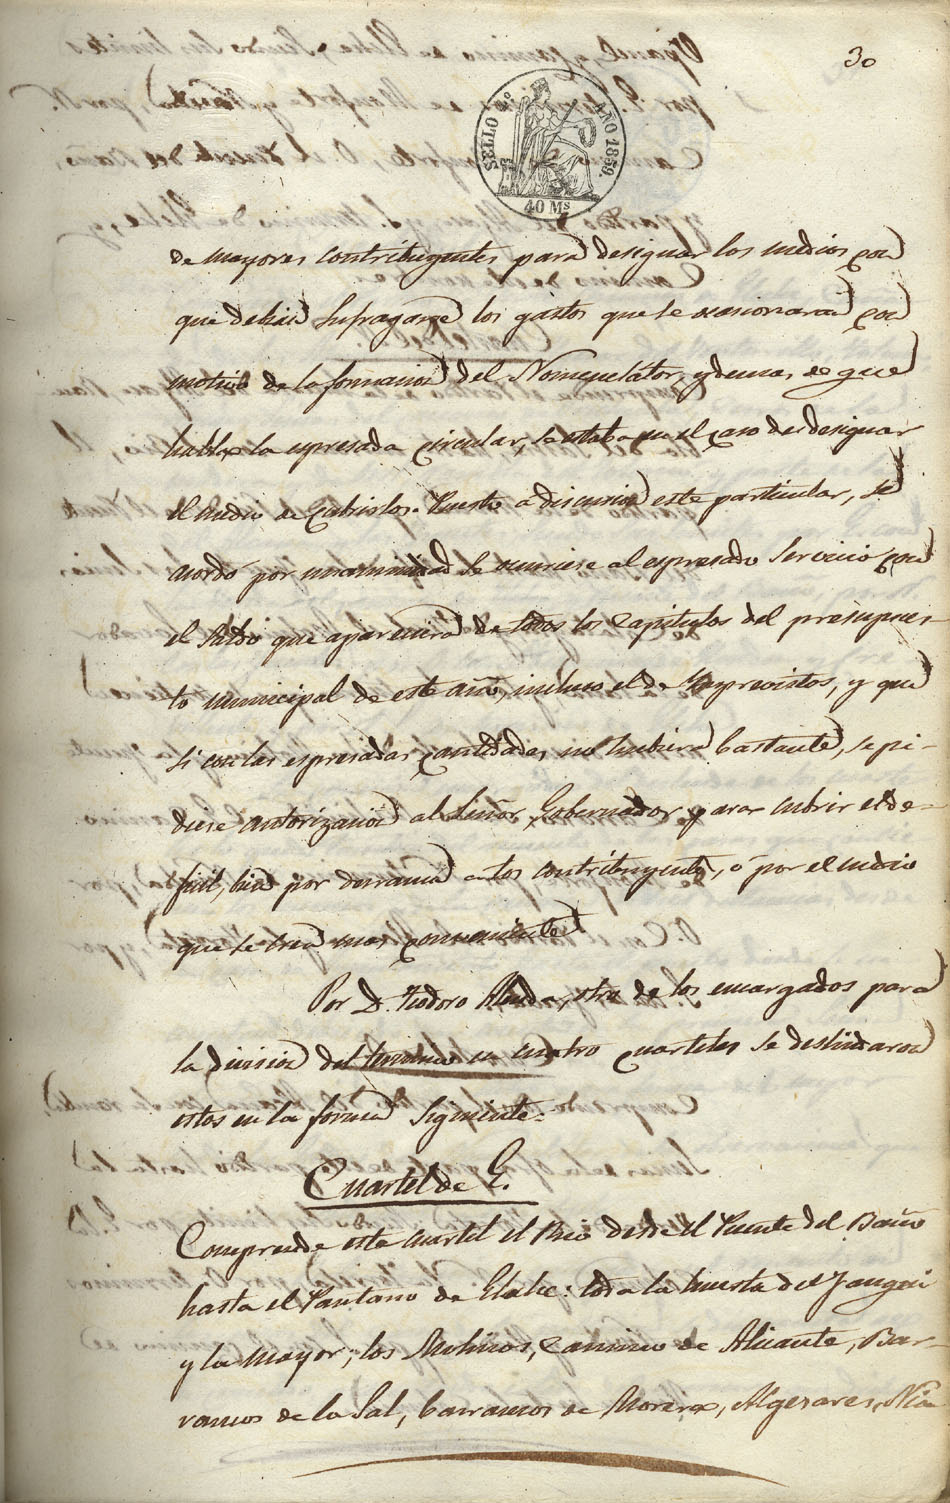 30
SELLO 4º AÑO 1859.
40 Ms
de mayores contribuyentes para designar los medios con
que debian sufragarse los gastos que se ocasionaran con
motivo de la formacion del Nomenclátor, y demas de que
habla la espresada circular, se estaba en el caso de designar
el medio de cubrirlos. Puesto a discusion este particular, se
acordó por unanimidad se ocurriese al espresado servicio con
el saldo que apareciera de todos los capitulos del presupues-
to municipal de este año, incluso el de Imprevistos, y que
si con las espresadas cantidades no hubiera bastante, se pi-
diese autorizacion al Señor Gobernador para cubrir el de-
ficit, bien por derrama a los contribuyentes, ó por el medio
que se crea mas conveniente.
Por D. Teodoro Alenda, otro de los encargados para
la division del termino en cuatro cuarteles se deslindaron
estos en la forma siguiente.
Cuartel de E.
Comprende este cuartel el Rio desde el Puente del Baño
hasta el Pantano de Elche: toda la huerta del
y la mayor, los Molinos, camino de Alicante, Bar-
rancos de la Sal, barrancos de Algesares,